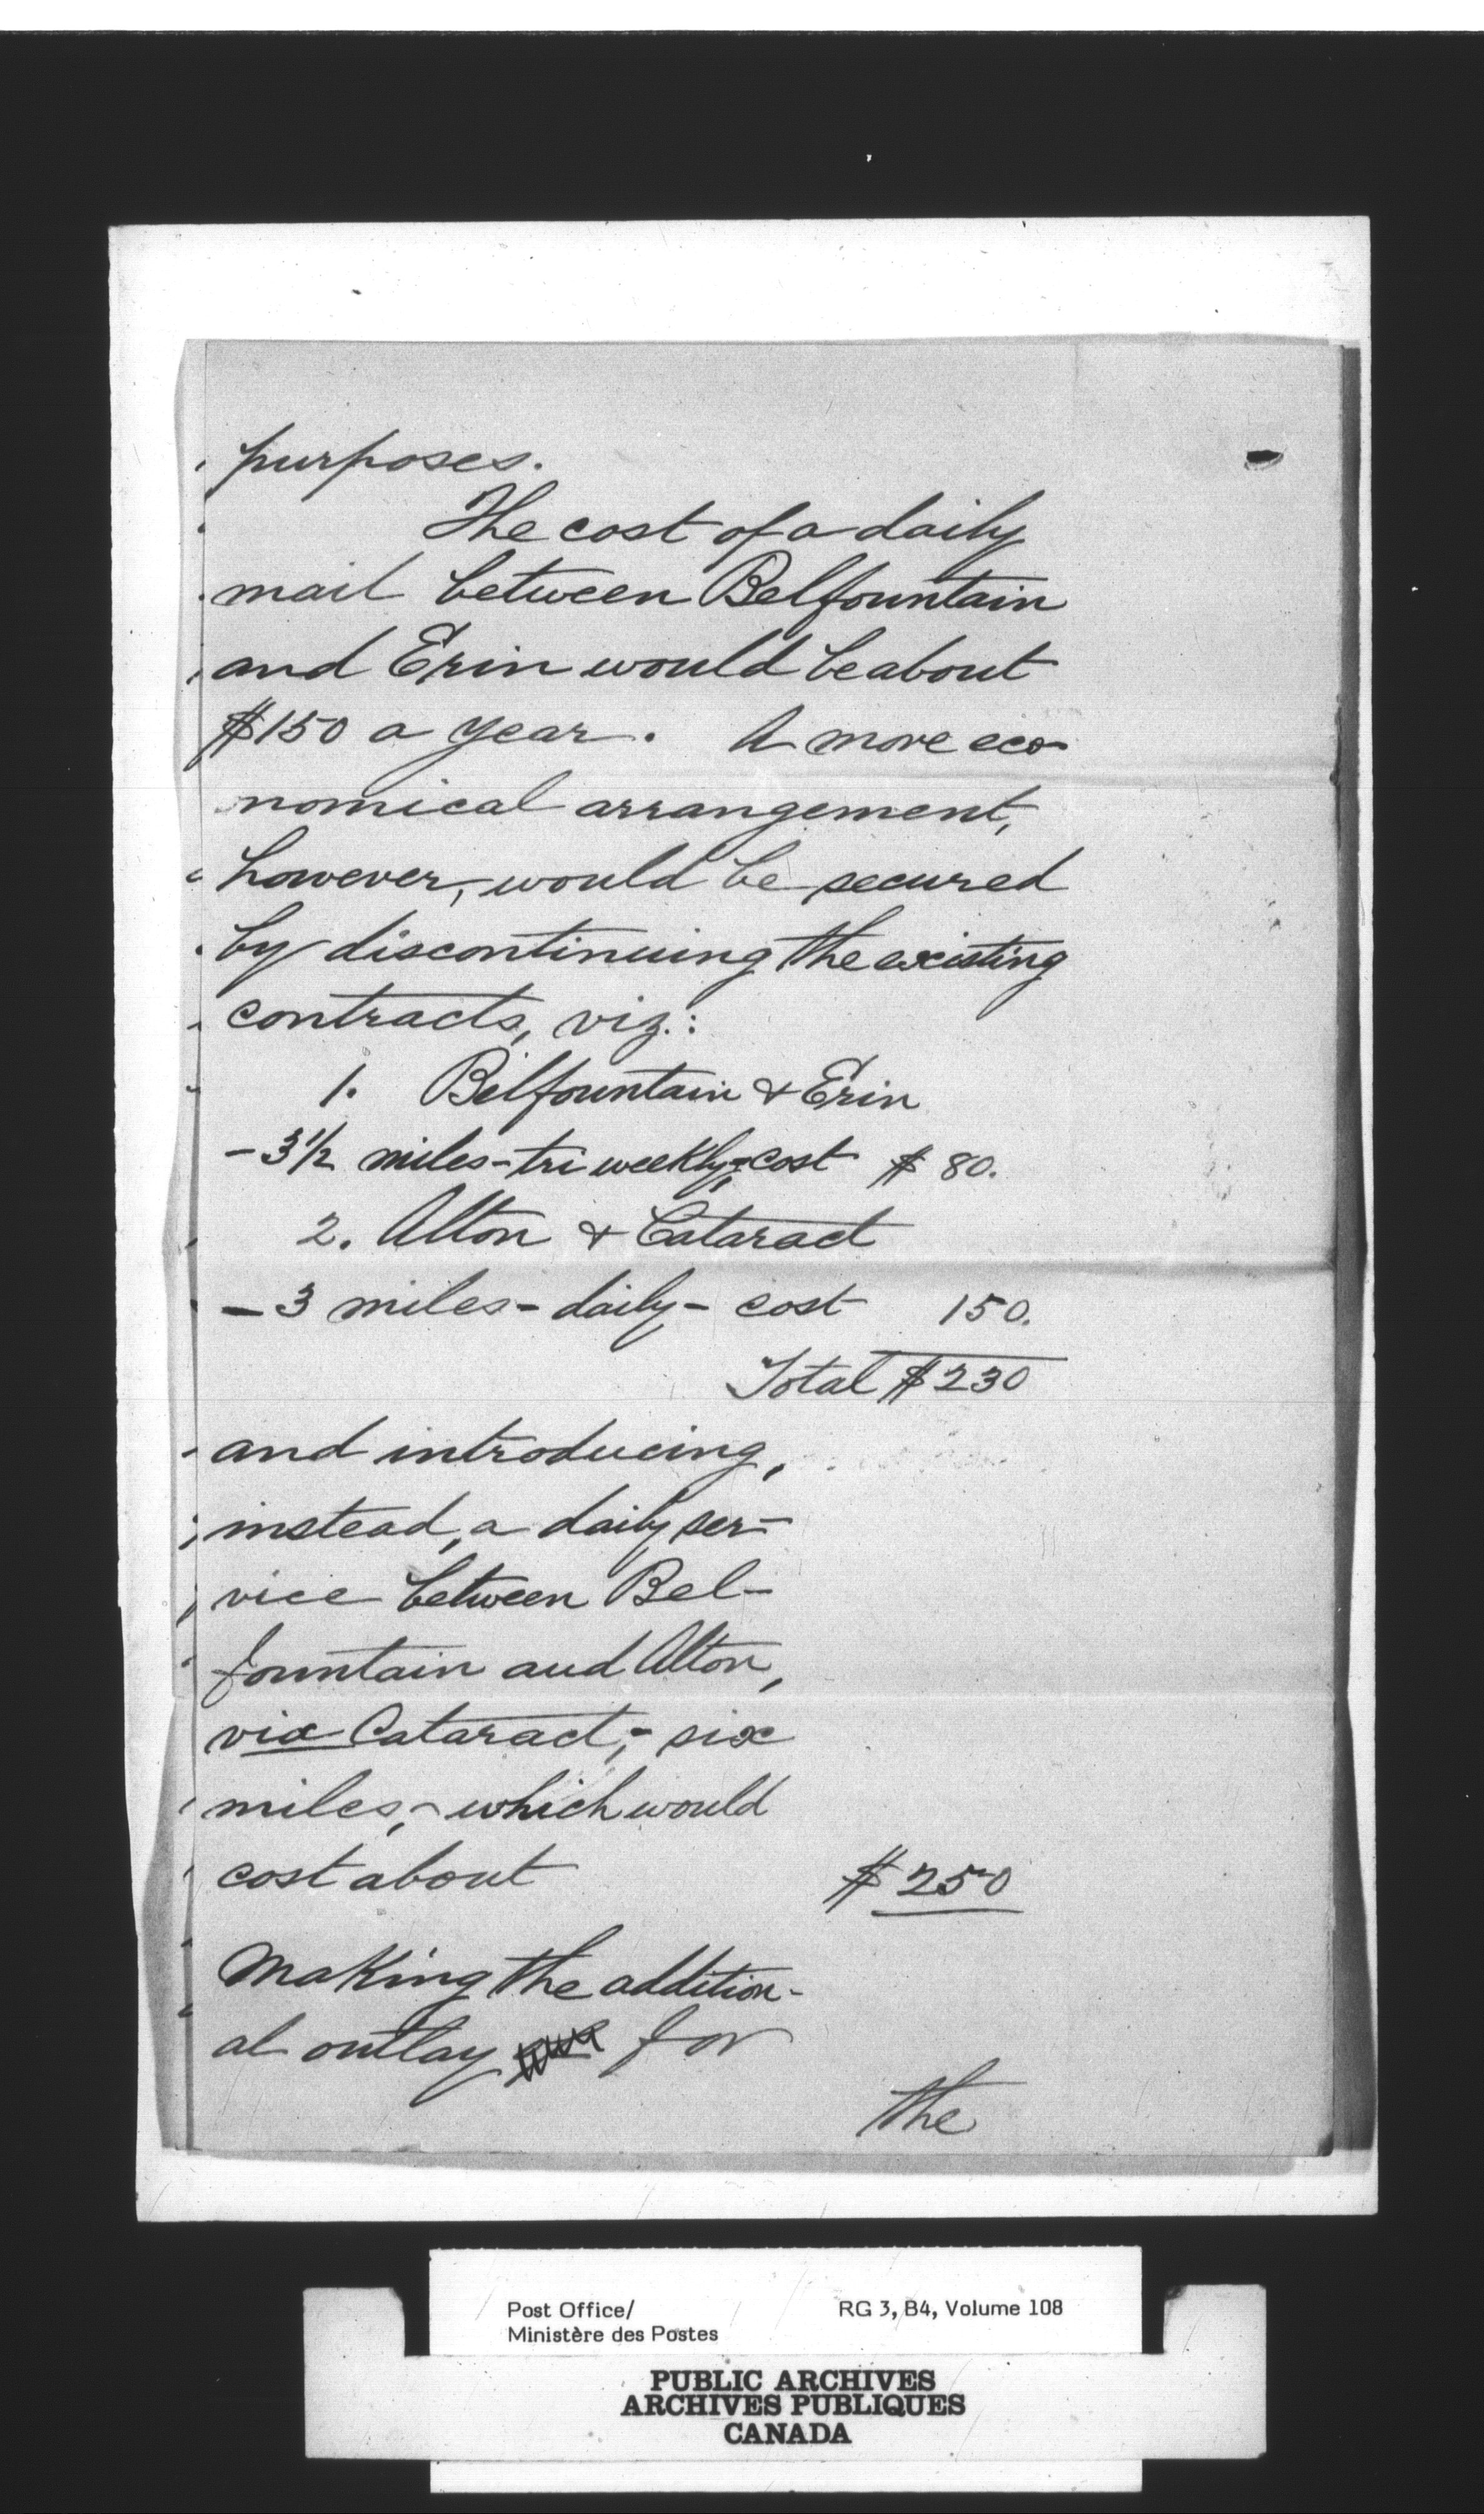 purposes.
The cost of a daily
mail between Belfountain
and Erin would be about
$150 a year. A more eco-
nomical arrangement,
however, would be secured
by discontinuing the existing
contracts, viz.:
1. Belfountain & Erin
- 3 1/2 miles - tri weekly, - cost $ 80.
2. Alton & Cataract
- 3 miles - daily - cost 150.
Total $230
and introducing,
instead, a daily ser-
vice between Bel-
fountain and Alton,
via Cataract, - six
miles, - which would
cost about $250
Making the addition-
al outlay for
the
Post Office/ RG 3, B4, Volume 108
Ministère des Postes
PUBLIC ARCHIVES
ARCHIVES PUBLIQUES
CANADA